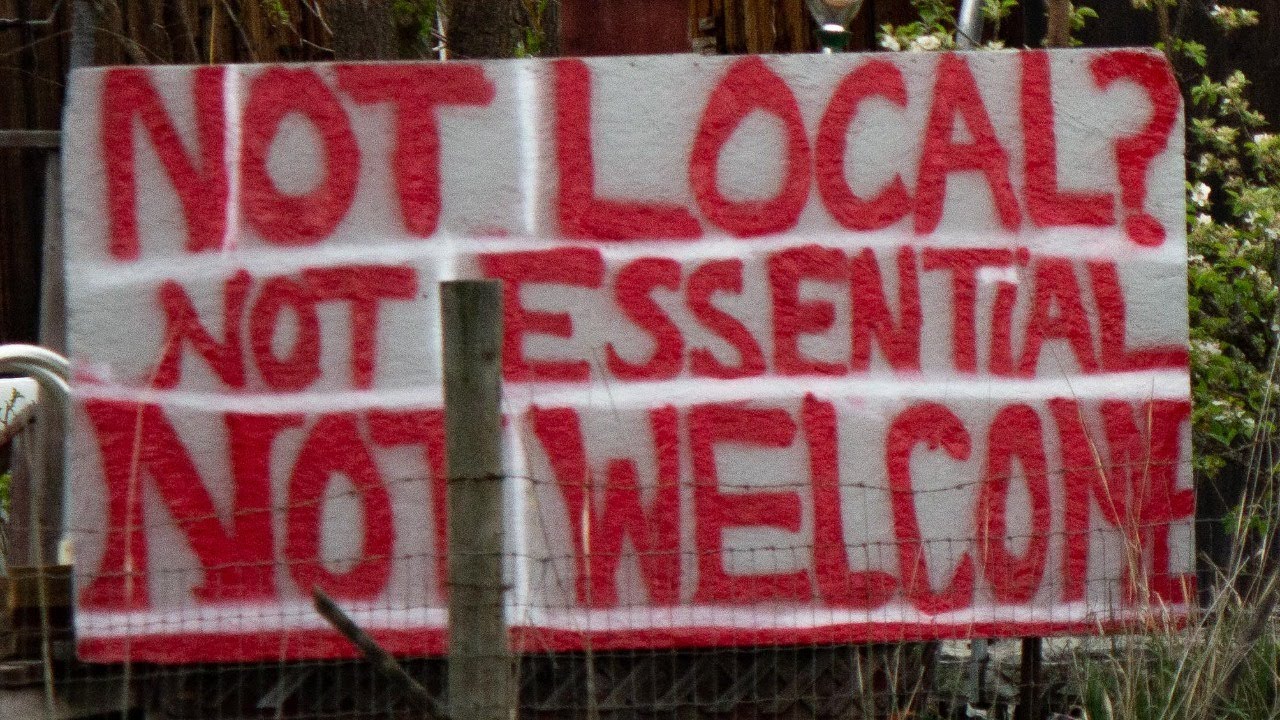 NOT LOCAL?
NOT ESSENTIAL
NOT WELCOME